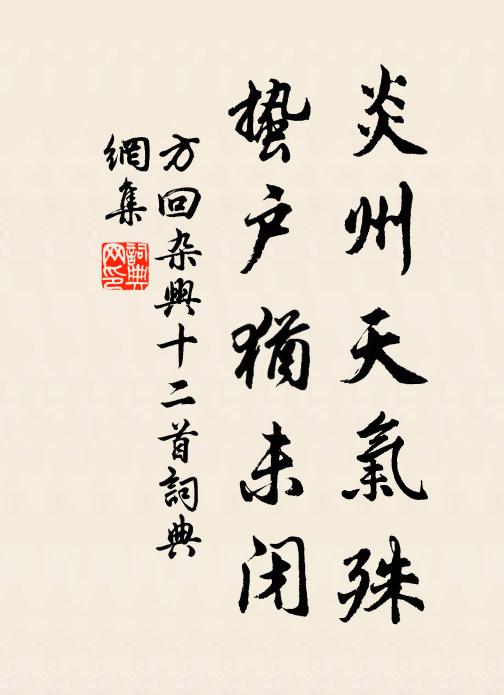 炎州天氣殊
蟄户猶未闭
方回杂興十二首詞典
網集
詞典
网印